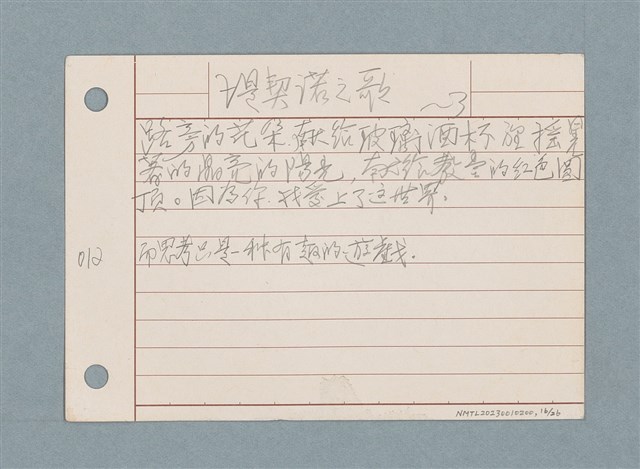 堤契诺之歌 ~3
路旁的花朵.献给玻璃酒杯裡摇晃
著的晶亮的陽光,献给教堂的红色圓
顶。因為你.我愛上了这世界.
012
而思考只是一种有趣的遊戲.
NMTL20230010200, 16/26